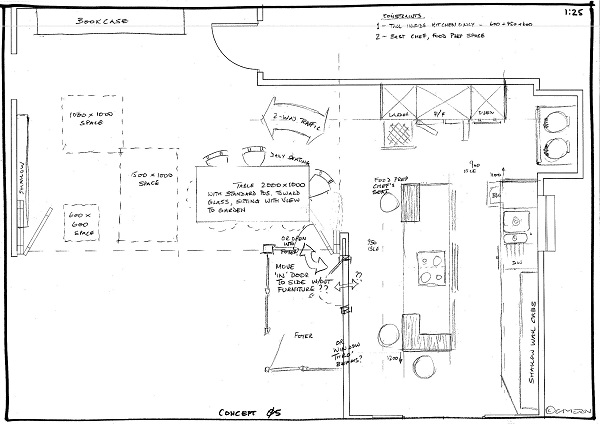 BOOKCASE
CONSTRAINTS.
1 - TALL INSIDE KITCHEN ONLY - 600+950+600
2 - BEST CHEF, FOOD PREP SPACE
1:25
1000 x 1000
SPACE
2-WAY TRAFFIC
LARDER
F/F
OVEN
DAILY SEATING
1500 x 1000
SPACE
SHALLOW
600 x
600
SPACE
TABLE 2000 x 1000
WITH STANDARD POS. TOWARD
GLASS, SITTING WITH VIEW
TO GARDEN
FOOD PREP
CHEF'S
SEAT
900
ISLE
950
ISLE
DW
OR OPEN
INTO
FOYER
MOVE
'IN' DOOR
TO SIDE W/OUT
FURNITURE ??
??
FOYER
OR
WINDOW
THRO'
1200
SHALLOW WALL CABS
CONCEPT 05